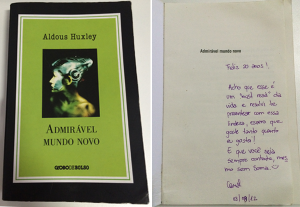 Aldous Huxley
ADMIRÁVEL
MUNDO NOVO
GLOBODEBOLSO
Admirável mundo novo
Feliz 20 anos!
Acho que esse é
um "must read" da
vida e resolvi te
presentear com essa
lindeza, espero que
goste tanto quanto
eu gosto!
E que você seja
sempre contente, mes-
mo sem Soma